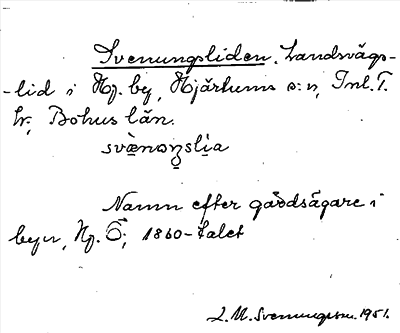 Svenungsliden. Landsvägs-
-lid i Hj. by, Hjärtums s:n, Inl. T.
hr, Bohus län.
svènoŋslia
Namn efter gårdsägare i
byn, Hj. Ö, 1860-talet
L. M. Svenungsson. 1951.